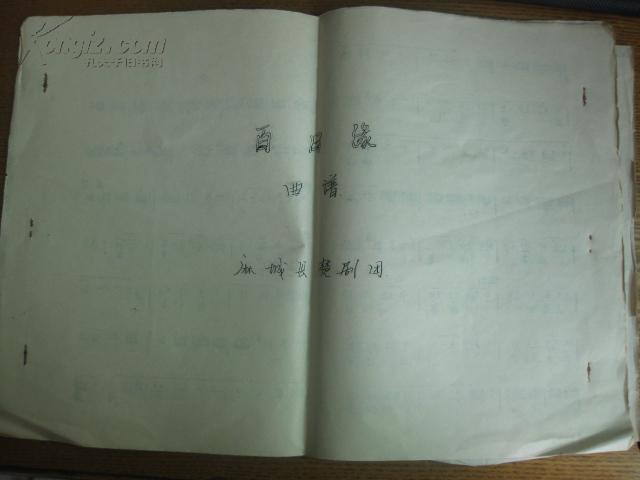 Kongfz.com
孔夫子旧书网
百日缘
曲谱
麻城县楚剧团